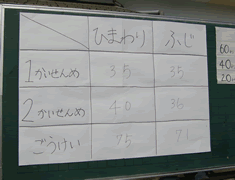 ひまわり ふじ
1かいせんめ 35 35
2かいせんめ 40 36
ごうけい 75 71
60
40
20